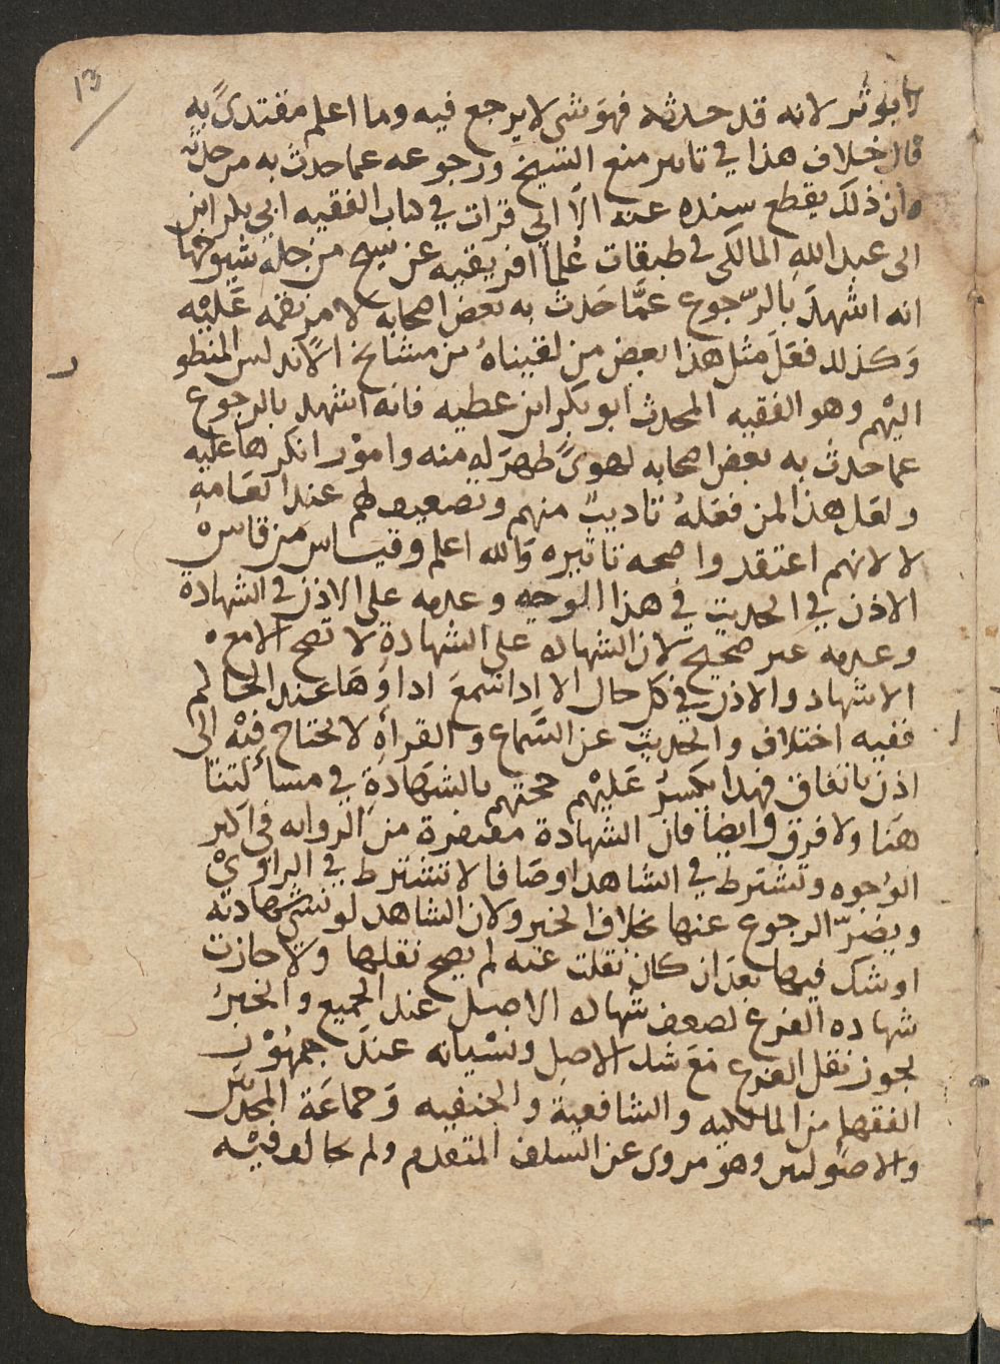 13
لا يؤثر لانه قد حدثه فهو شى لا يرجع فيه وما اعلم مقتدىً به
قال خلاف هذا في تاثير منع الشيخ ورجوعه عما حدث به من حدثه
وان ذلك يقطع سنده عنه الا انى قرات في كتاب الفقيه ابي بكر ابن
ابى عبد الله المالكى في طبقات عُلما افريقيه عن شيخ من جلة شيوخها
انه اشهدَ بالرّجوع عمَّا حَدث به بعض اصحابه لامر نقمه عَليْه
وَكذلك فعَلَ مثل هذا بعض من لقيناهُ من مشايخ الاندلس المنظور
اليْهم وهو الفقيه المحدث ابو بكر ابن عطيه فانه اشهد بالرجوع
عما حدث به بعض اصحابه لهوىً ظهرَ له منه وامؤر انكرها عليه
ولعل هذا لمن فعَلهُ تاديبٌ منهم وتضعيف لهم عند العَامه
لا لانهم اعتقدوا صحه تاثيره وَالله اعلم وقيَاس من قاسَ
الاذن في الحديث في هذا الوجه وعدمه على الاذن في الشهادة
وعدمه غير صحيح لان الشهاده على الشهادة لا تصح الا مع
الاشهاد والاذن في كل حال الا اذا سمعَ اداوَهَا عند الحاكم
ففيه اختلاف والحديث عن السَّماع والقراة لا يحتاج فيْه الى
اذن باتفاق فهذا يكسرُ عَليْهم حجتهم بالشهَادةِ في مسألتنا
هَنا ولا فرق وايضا فان الشهادة مفتقرة من الروايه في اكثر
الوُجوه وتشترط في الشاهد اوصَافا لا تشترط في الراويْ
ويضرّ الرجوع عنها بخلاف الخبر ولان الشاهد لو نسى شهادته
او شك فيها بعد ان كان نقلت عنه لم يصح نقلها ولا جازت
شهاده الفرع لضعف شهاده الاصل عند الجميع والخبرُ
يجوز نقل الفرع مَعَ شك الاصل ونسْيانه عندَ جمهوْر
الفقها من المالكيه والشافعية والحنفيه وَجماعَة المحدثين
والاصُوليين وهو مروى عن السلف المتقدم ولم يخالف فيْه